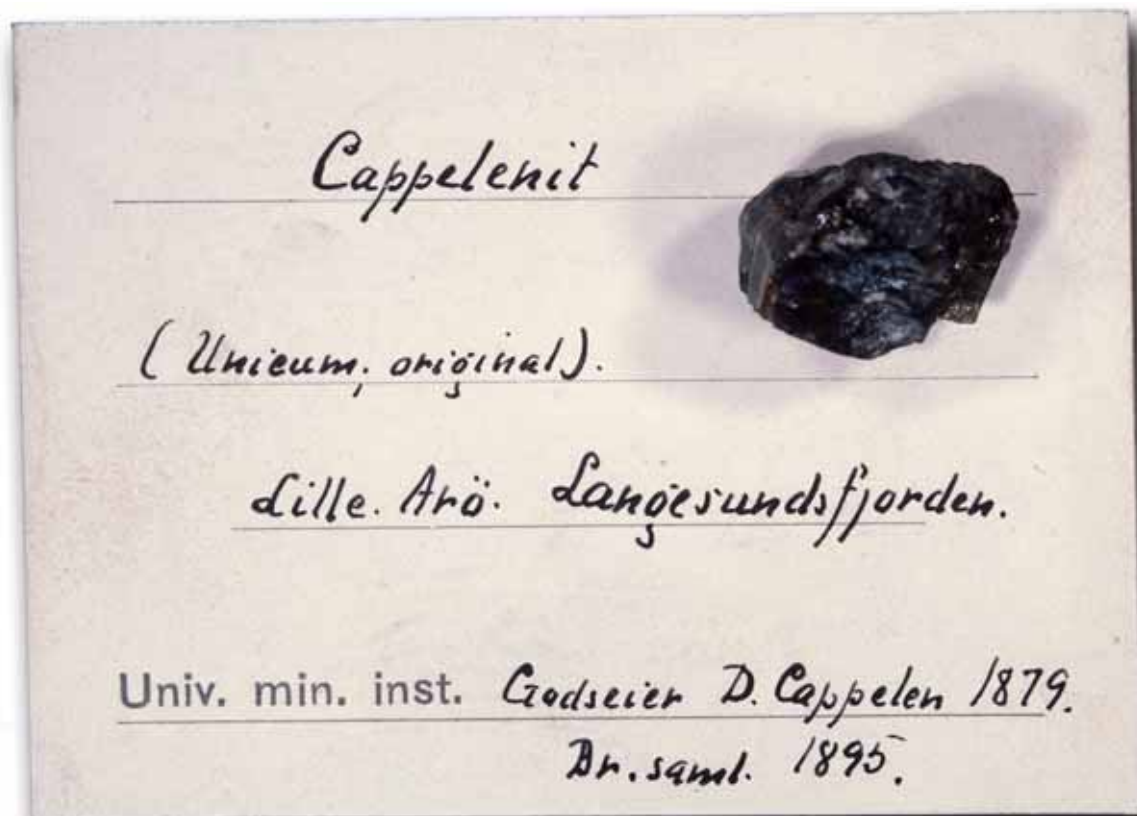 Cappelenit
(Unicum, original).
Lille. Arö. Langesundsfjorden.
Univ. min. inst. Godseier D. Cappelen 1879.
Br. saml. 1895.